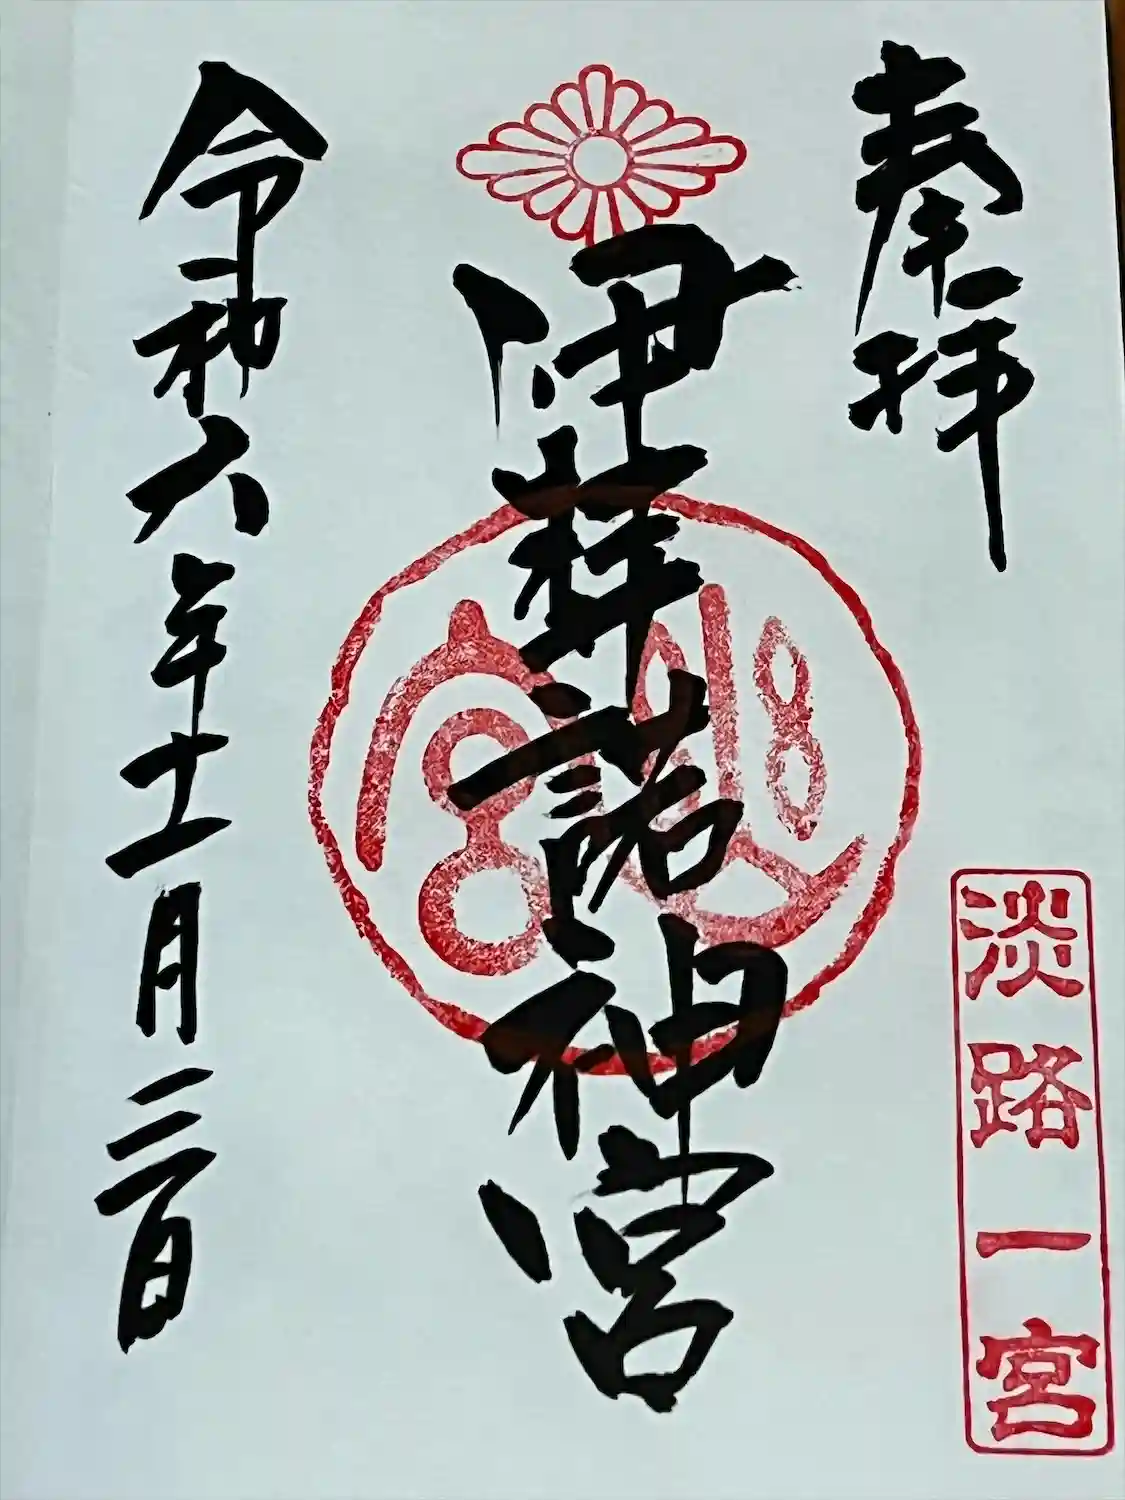 奉拝
淡路一宮
伊弉諾神宮
令和六年十一月三日